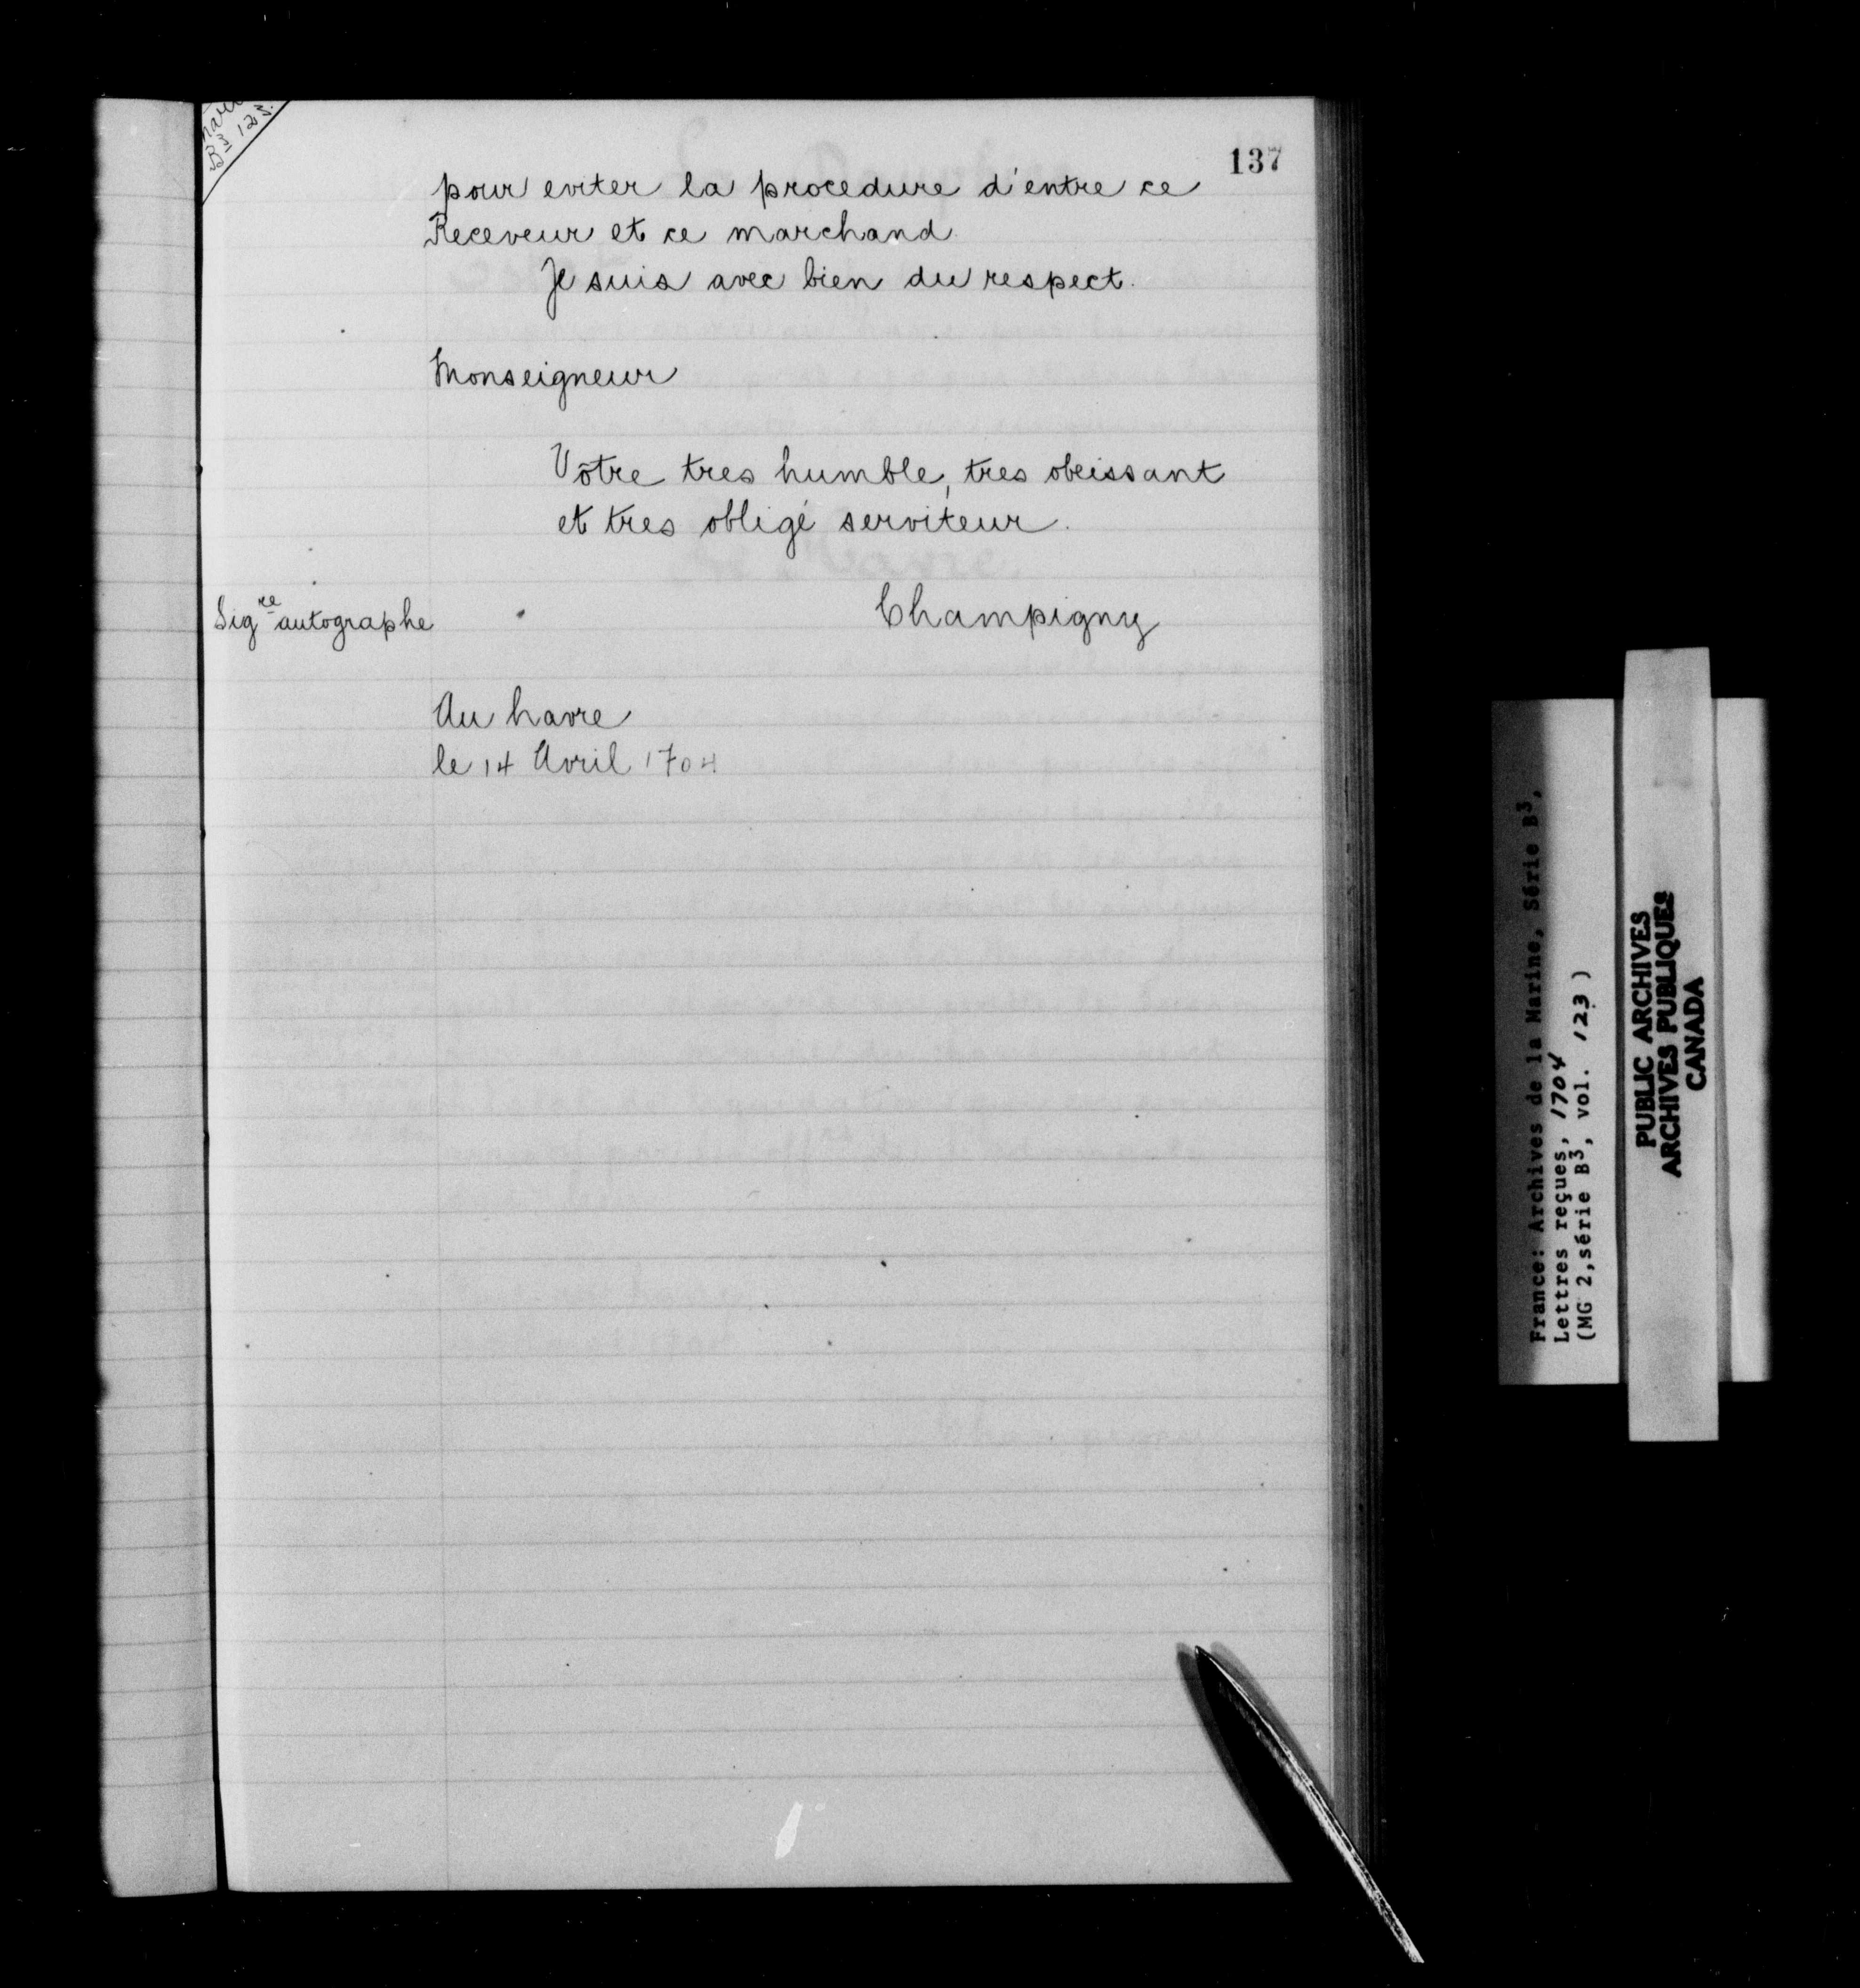 B3 123.
137
pour eviter la procedure d'entre ce
Receveur et ce marchand.
Je suis avec bien du respect.
Monseigneur
Vôtre tres humble, tres obeissant
et tres obligé serviteur.
Sigre autographe
Champigny
Au havre
le 14 Avril 1704
France: Archives de la Marine, Série B3,
Lettres reçues, 1704
(MG 2,série B3, vol. 123)
PUBLIC ARCHIVES
ARCHIVES PUBLIQUES
CANADA